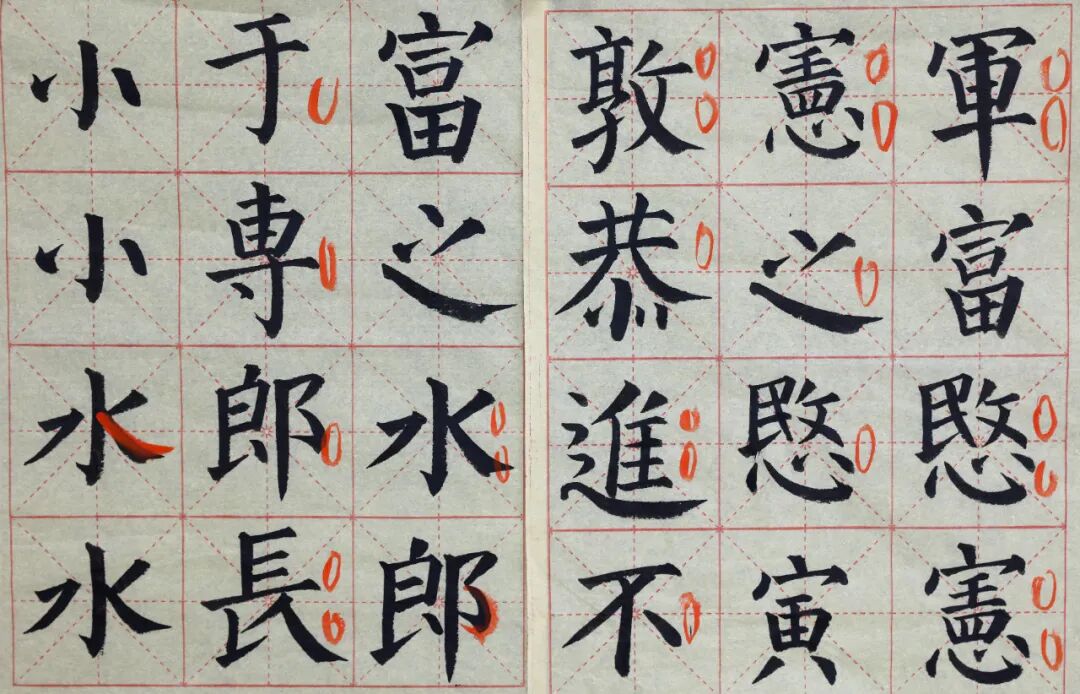 軍富愍憲
憲之愍寅
敦恭進不
富之水郎
于専郎長
小小水水